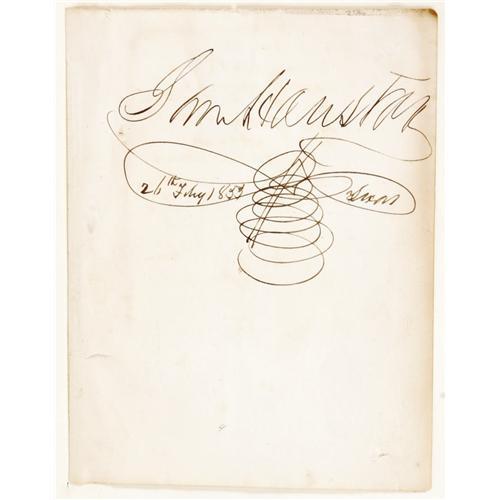 Sam Houston
26th Feby 1853 Texas